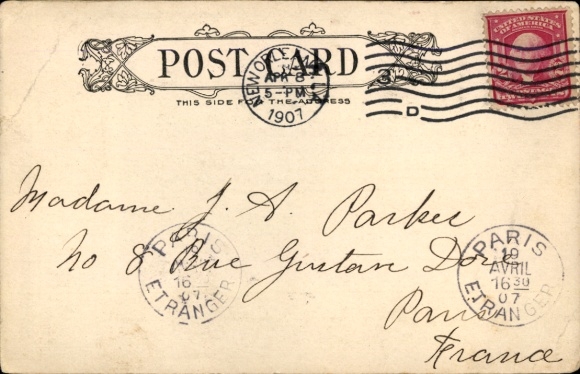 POST CARD
THIS SIDE FOR THE ADDRESS
NEW ORLE
APR 8
5-PM
1907
3
D
UNITED STATES
OF AMERICA
Madame J. A. Parker
No 8 Rue Gustave Doré
Paris
France
PARIS
16
07
ETRANGER
PARIS
19
AVRIL
16 30
07
ETRANGER